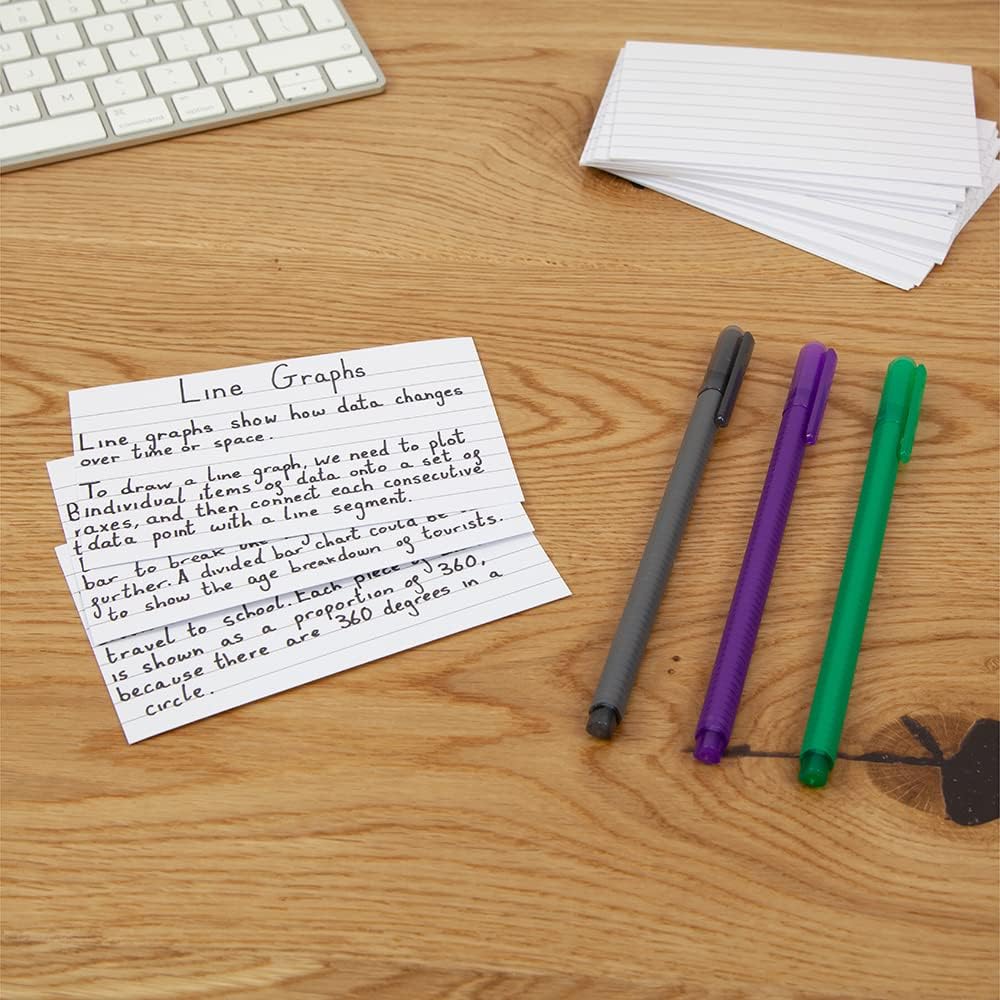 N
M
command
option
Line Graphs
Line graphs show how data changes
over time or space.
To draw a line graph, we need to plot
individual items of data onto a set of
axes, and then connect each consecutive
data point with a line segment.
bar to break
further. A divided bar chart could be
to show the age breakdown of tourists.
travel to school. Each piece
is shown as a proportion of 360,
because there are 360 degrees in a
circle.